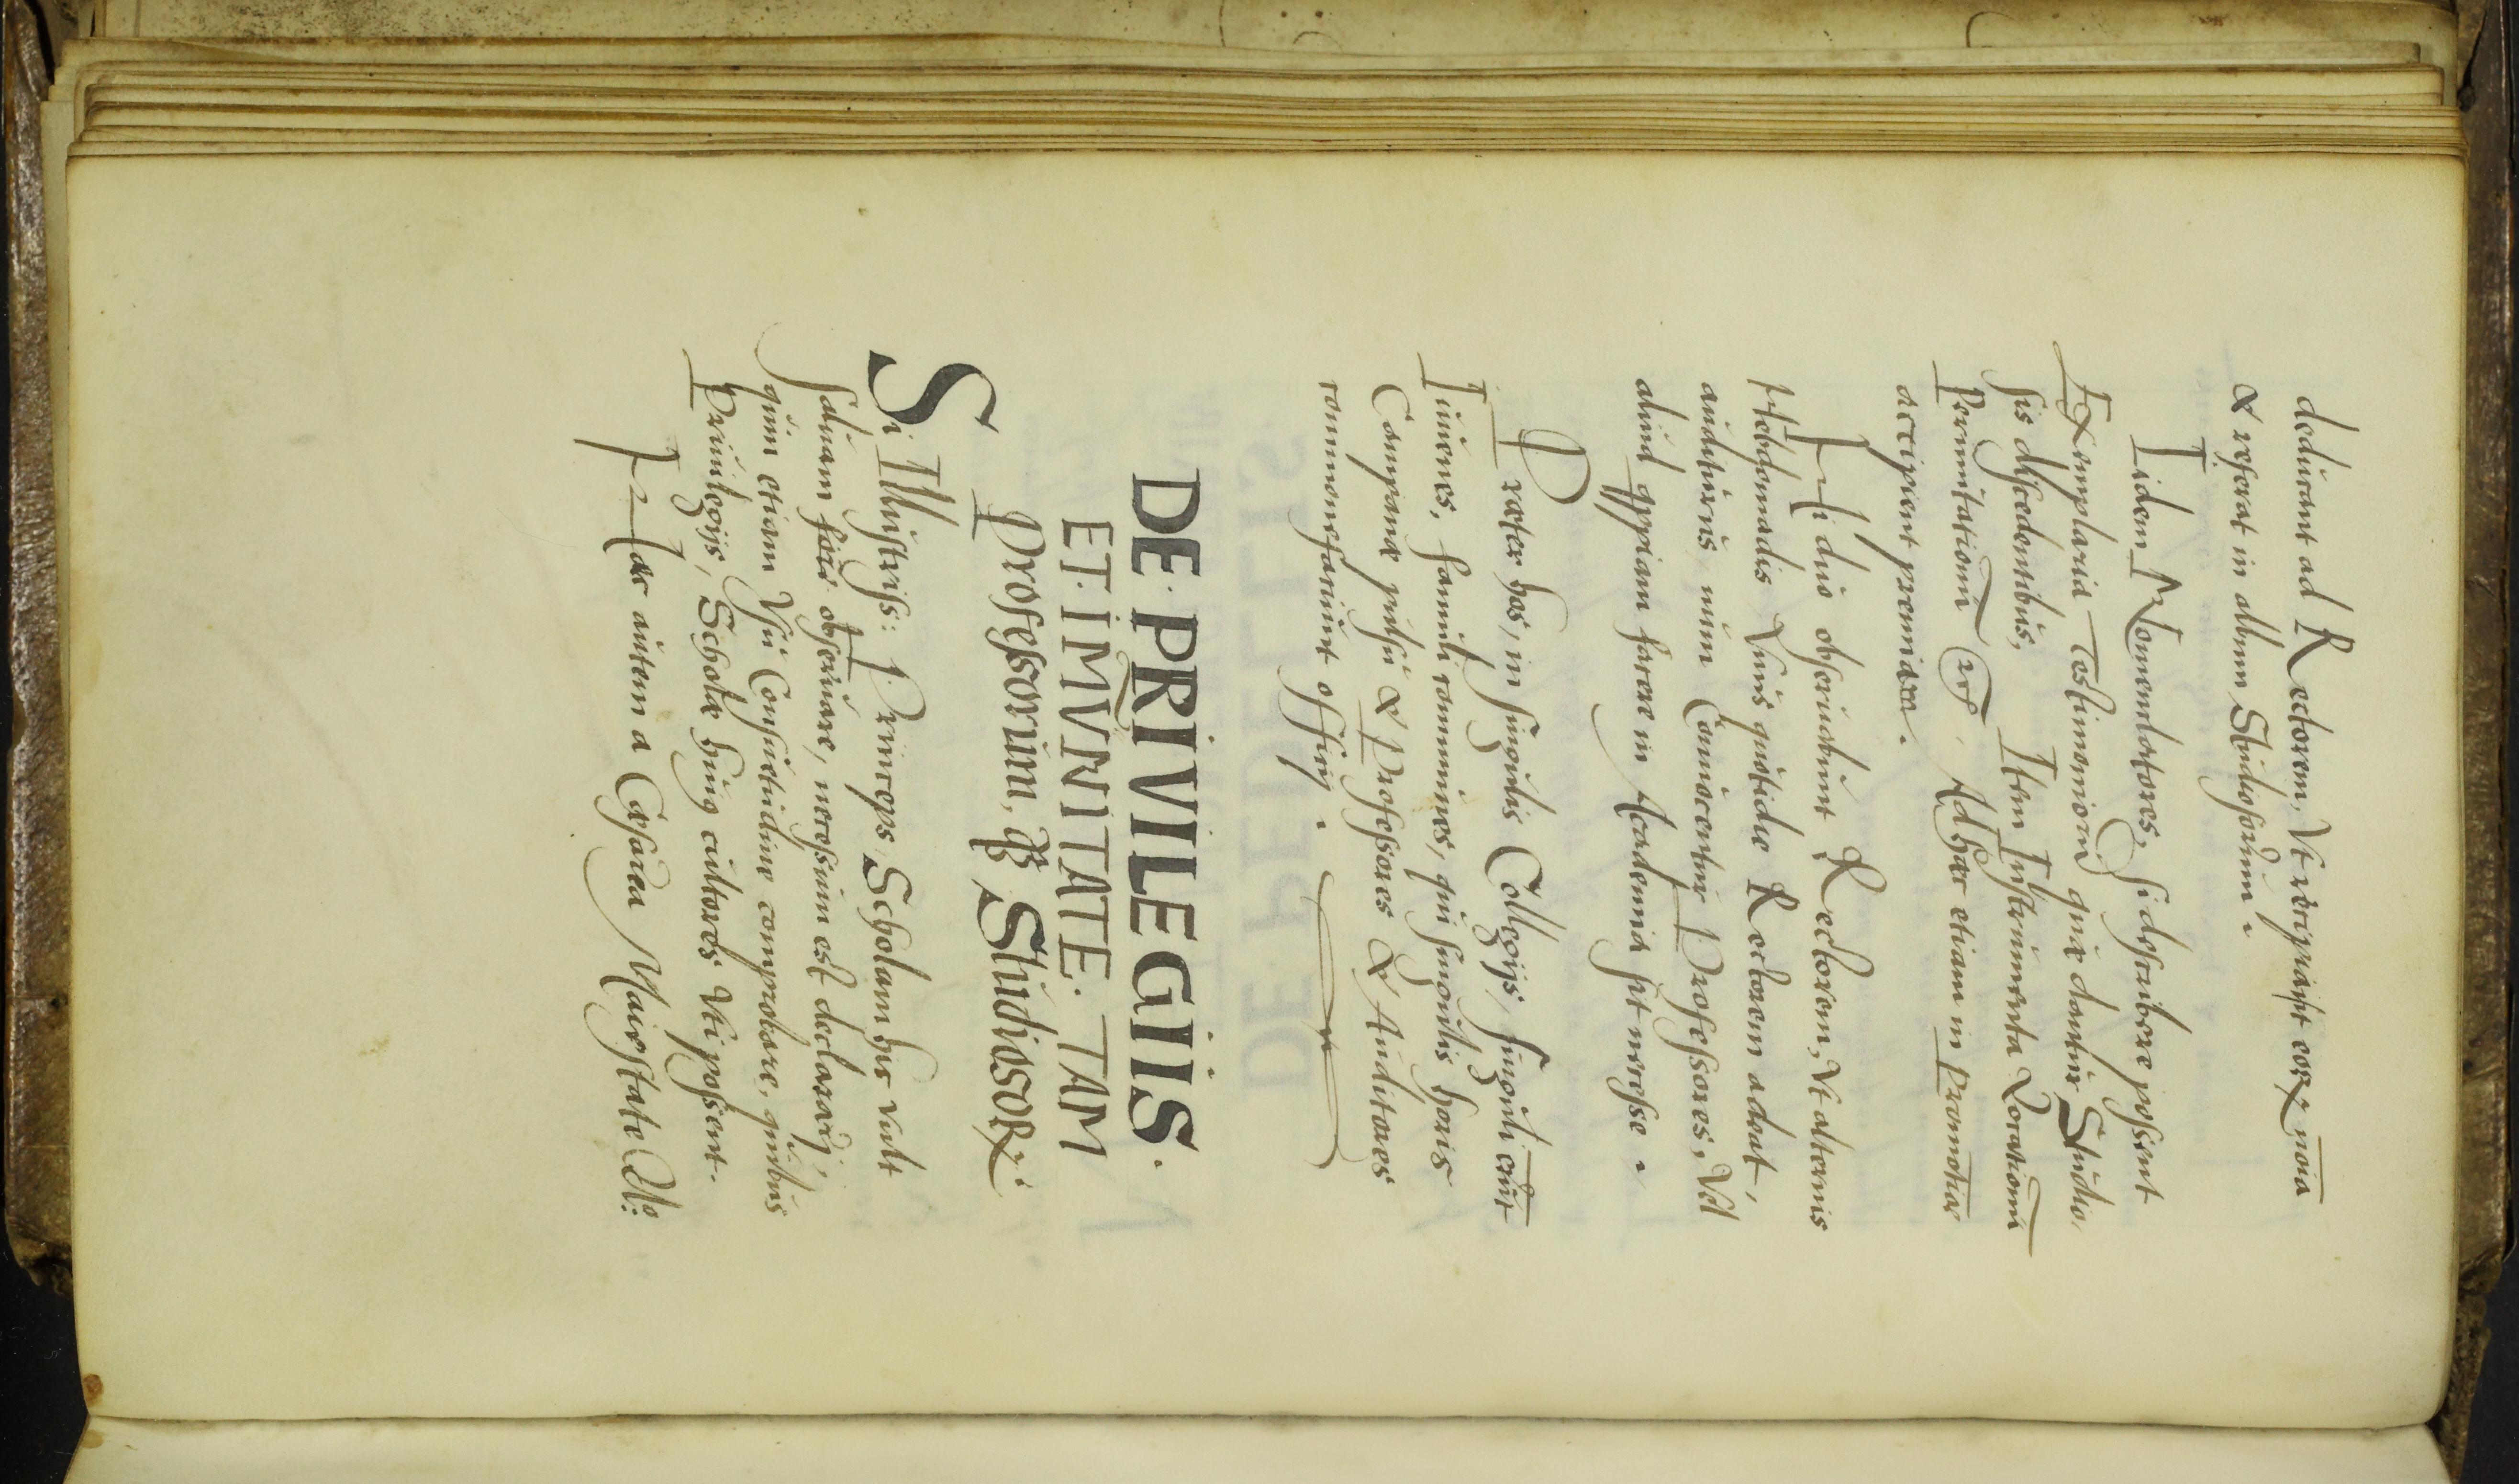 dedúcant ad Rectorem, Vt recipiat eorꝝ noīa
& referat in album Studiosorúm.
Iidem Nomenclatores, si describere possent
Exemplaria Testimoniorū quæ dantúr Studio,
sis discedentibús, Item Instrúmenta Locationū
Permútationū
Ad hæc etiam in Promotiōe
accipient præmia
Hi dúo obserúabúnt Rectorem, Vt alternis
Hebdomadis Vnús quotidie Rectorem adeat,
auditúrús núm Conúocentúr Professores, Vel
aliúd qppiam facere in Academia sit necesse.
Præter hos, in singúlis Collegijs, singúli erūt
Iúúenes, famúli commúnes, qúi singúlis horis
Campanæ púlsú & Professores & Aúditores
commonefaciúnt officij.
DE PRIVILEGIIS.
ET. IMVNITATE. TAM
Professorúm, qᷓ Stúdiosorꝝ.
Si Illústriss: Princeps Scholam hic vúlt
saluam obserúare, necessúm est declarari,
qúin etiam Vsú Consúetúdine comprobare, qúibús
Priúilegijs, Scholæ húiꝯ cúltores Vti possent.
Hæc aútem a Cæsarea Maiestate Vᵒ: